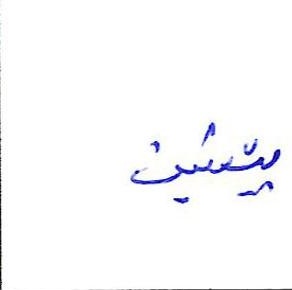 پیشین